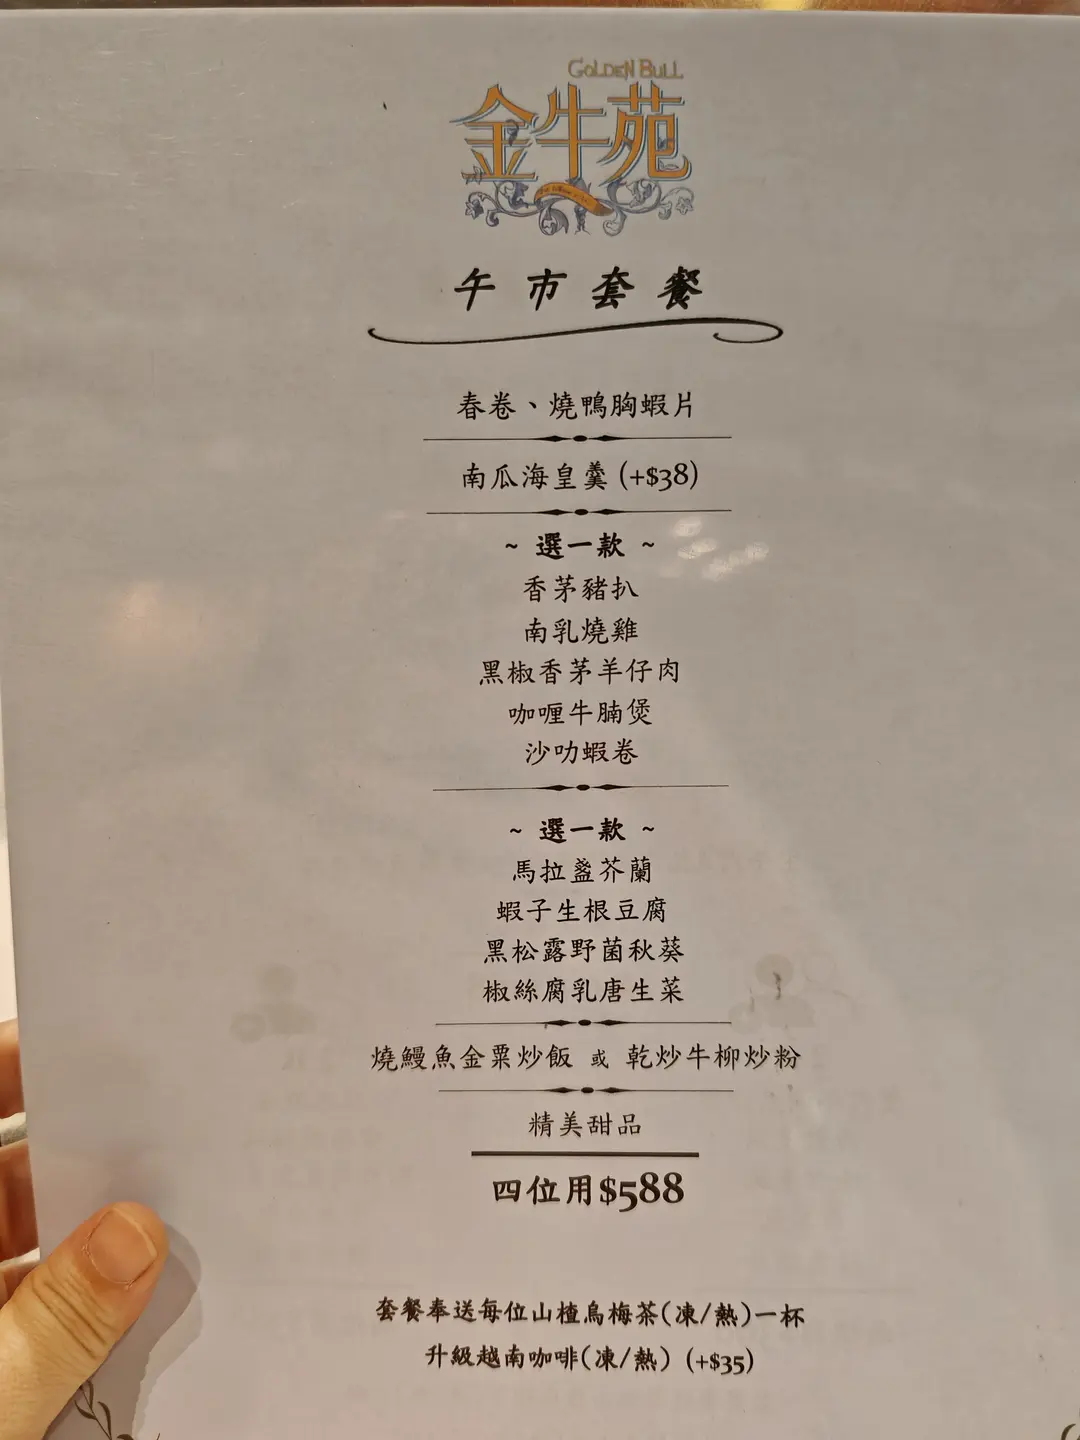 GOLDEN BULL
金牛苑
午市套餐
春卷、燒鴨胸蝦片
南瓜海皇羹 (+$38)
~ 選一款 ~
香茅豬扒
南乳燒雞
黑椒香茅羊仔肉
咖喱牛腩煲
沙叻蝦卷
~ 選一款 ~
馬拉盞芥蘭
蝦子生根豆腐
黑松露野菌秋葵
椒絲腐乳唐生菜
燒鰻魚金粟炒飯 或 乾炒牛柳炒粉
精美甜品
四位用$588
套餐奉送每位山楂烏梅茶(凍/熱)一杯
升級越南咖啡(凍/熱) (+$35)